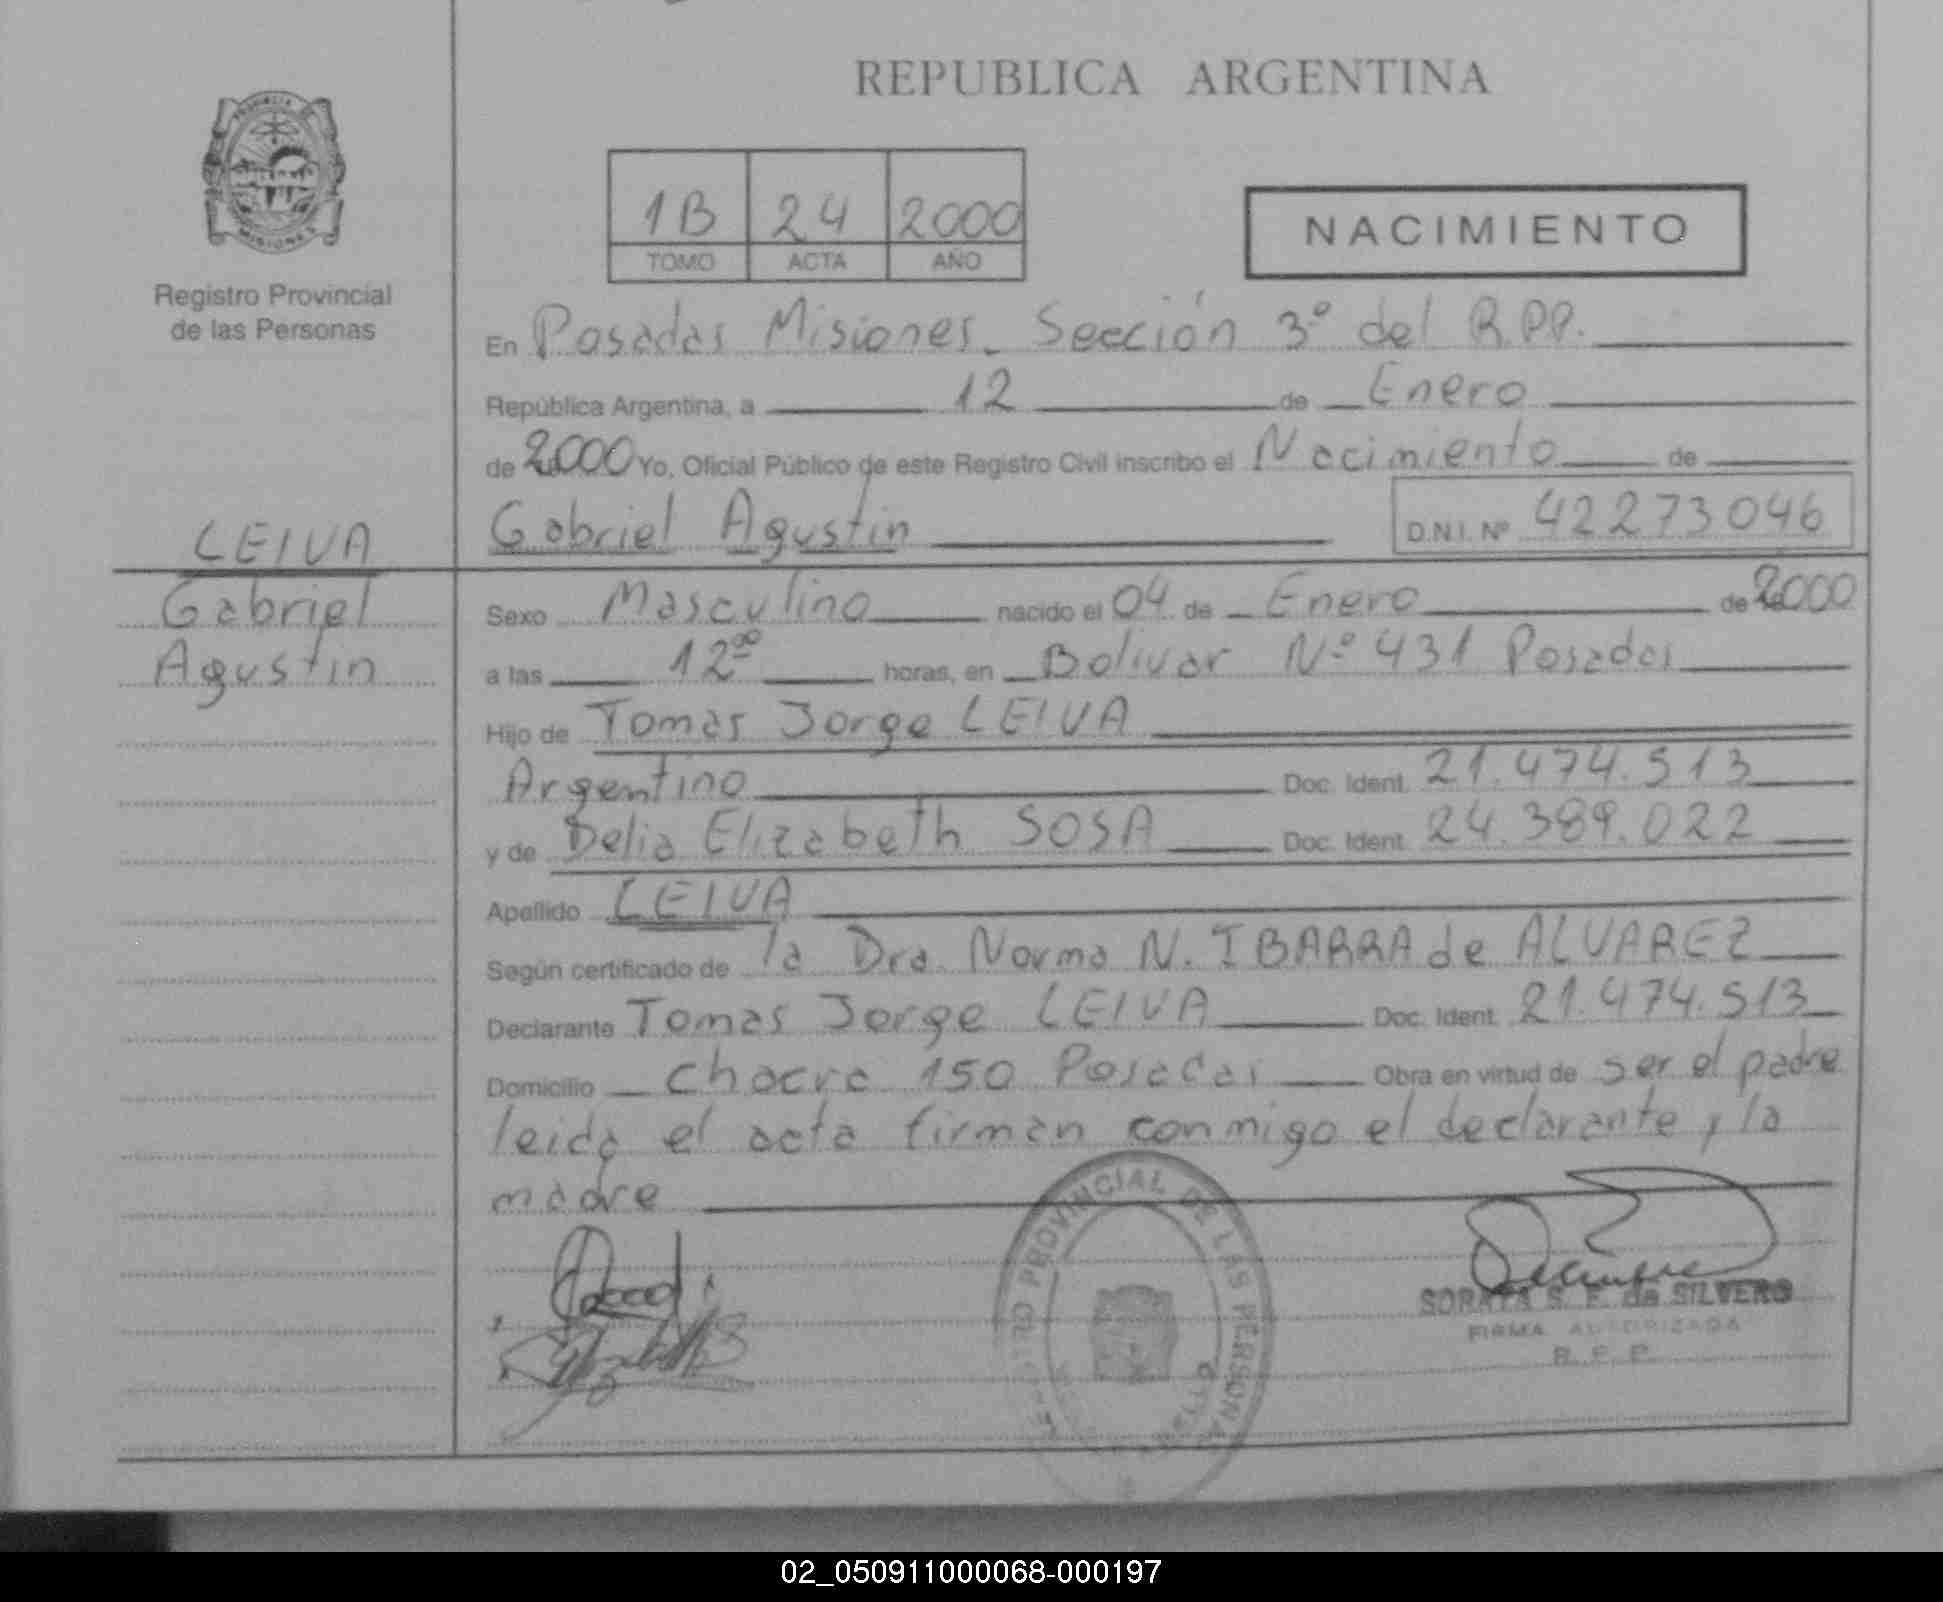 REPUBLICA ARGENTINA
PROVINCIA
MISIONES
Registro Provincial
de las Personas
1B 24 2000
TOMO ACTA AÑO
NACIMIENTO
En Posadas Misiones. Sección 3º del R.P.P.
República Argentina, a 12 de Enero
de 2000 Yo, Oficial Público de este Registro Civil inscribo el Nacimiento de
LEIVA
Gabriel
Agustin
Gabriel Agustin D.N.I. Nº 42273046
Sexo Masculino nacido el 04 de Enero de 2000
a las 12⁰⁰ horas, en Bolivar Nº 431 Posadas
Hijo de Tomas Jorge LEIVA
Argentino Doc. Ident. 21.474.513
y de Delia Elizabeth SOSA Doc. Ident. 24.389.022
Apellido LEIVA
Según certificado de la Dra. Norma N. IBARRA de ALVAREZ
Declarante Tomas Jorge LEIVA Doc. Ident. 21.474.513
Domicilio Chacra 150 Posadas Obra en virtud de ser el padre
leida el acta firman conmigo el declarante y la
madre
PROVINCIAL DE LAS PERSONAS
SORAYA S. F. de SILVERO
FIRMA AUTORIZADA
R. P. P.
02_050911000068-000197